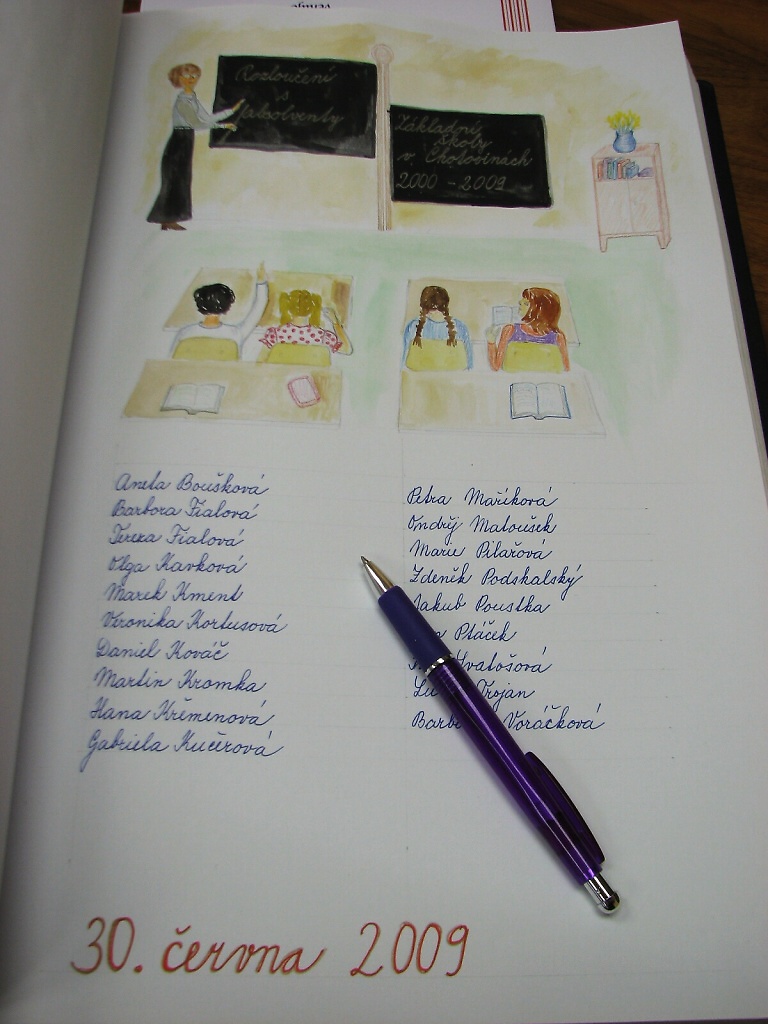 Rozloučení
s
absolventy
Základní
školy
v Chotovinách
2000 - 2009
Aneta Boušková
Barbora Fialová
Tereza Fialová
Olga Kavková
Marek Kment
Veronika Kortusová
Daniel Kováč
Martin Kromka
Hana Křemenová
Gabriela Kučerová
Petra Maříková
Ondřej Matoušek
Marie Pilařová
Zdeněk Podskalský
Jakub Poustka
Ptáček
Svatošová
Trojan
Voráčková
30. června 2009